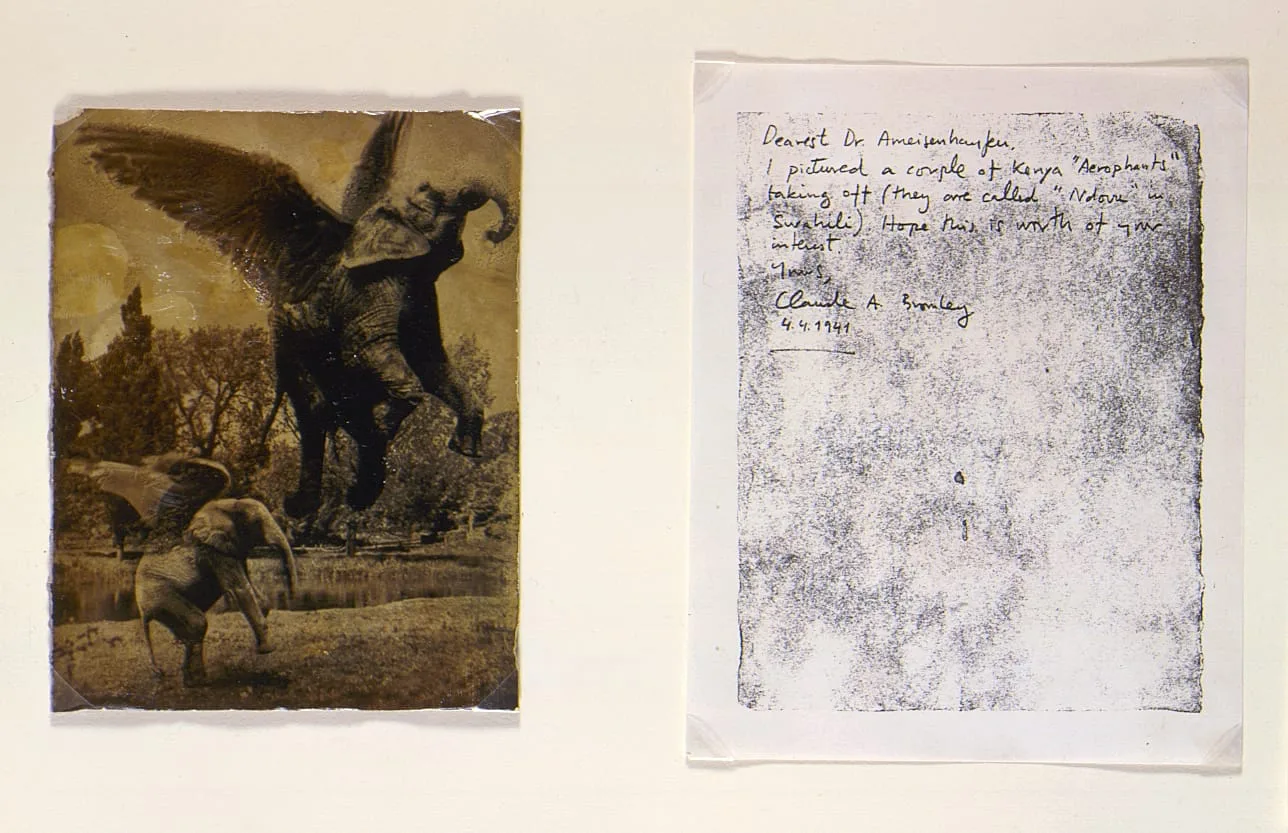 Dearest Dr. Ameisenhaufen,
I pictured a couple of Kenya "Aerophants"
taking off (they are called "Ndovu" in
Swahili) Hope this is worth of your
interest.
Yours,
Claude A. Bromley
4.4.1941